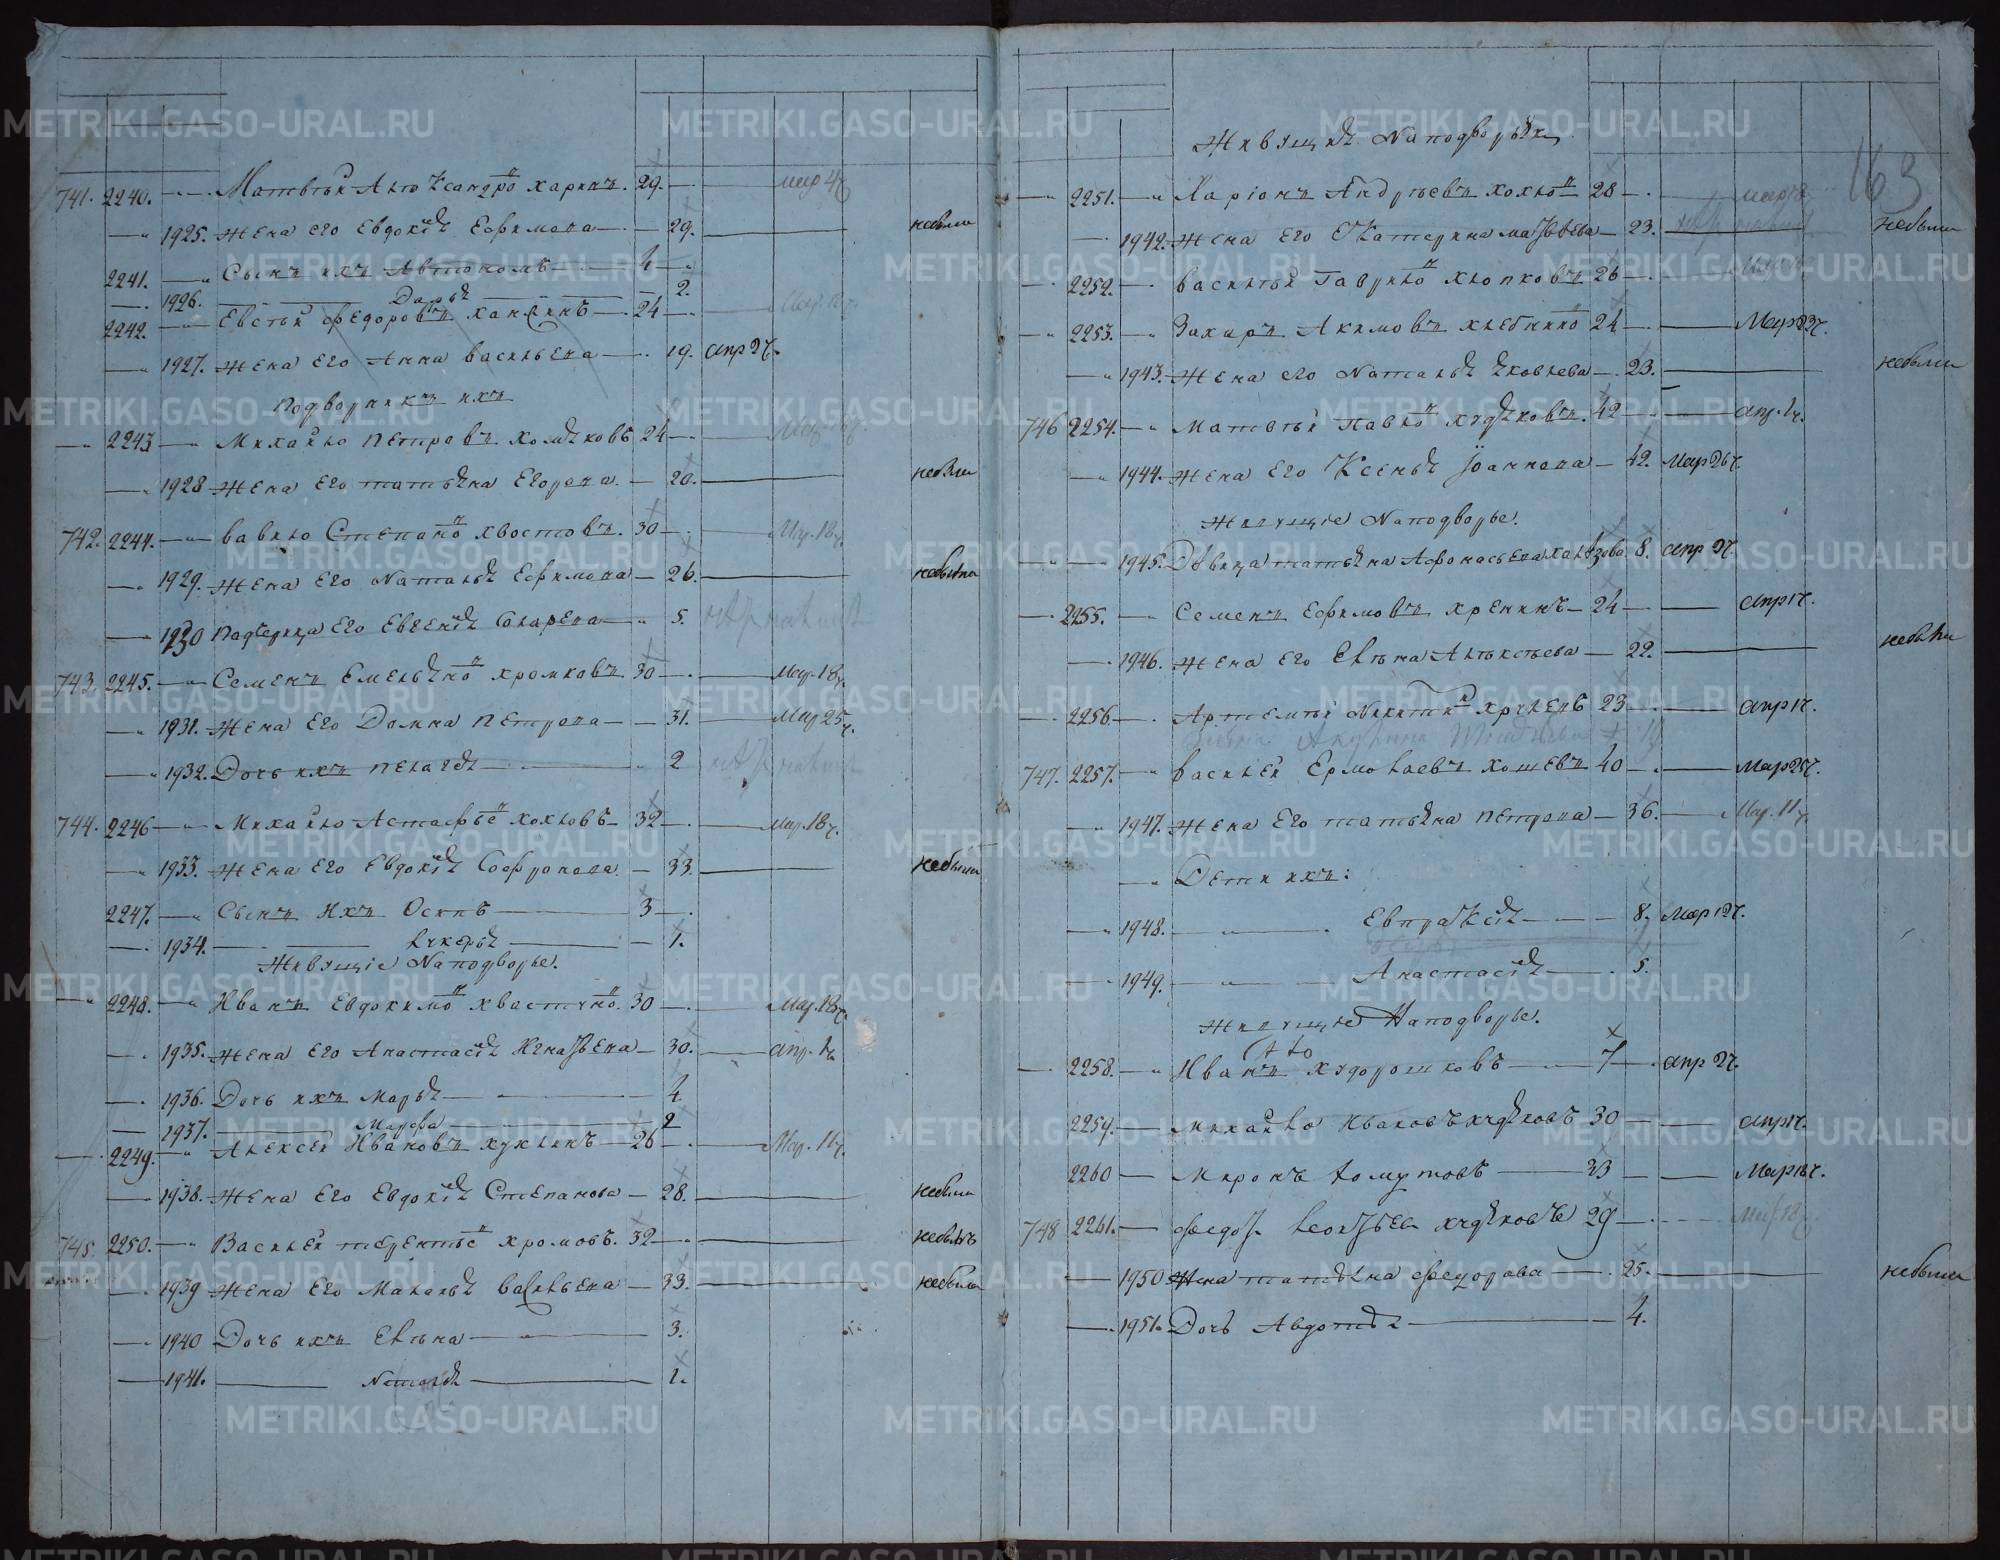 741. 2240. Матвѣй Александро харинъ. 29. мар 4ч
1925. Жена его Евдокія Ефимова 29. небыла
2241. Сынъ ихъ Автономъ 4
1926. Дарья 2.
2242. Евсѣй Федоровъ ханжинъ 24
1927. Жена Его Анна васильева 19. апр 2ч.
Подворники ихъ
2243 Михайло Петровъ хомяковъ 24
1928 Жена Его татьяна Егорова. 20. небыла
742. 2244. вавило Степано хвостовъ. 30 Мар. 18ч.
1929. Жена Его Наталья Ефимова 26. небыла
1930 Падчерица Его Евгенія 5.
743. 2245. Семенъ Емельяно хромковъ 30 Мар. 18ч.
1931. Жена Его Домна Петрова 31. Мар 25ч.
1932. Дочь ихъ Пелагея 2
744. 2246 Михайло Астафье хохловъ 32 Мар. 18ч.
1933. Жена Его Евдокія Софронова 33. небыла
2247. Сынъ Ихъ Осипъ 3
1934. Лукерья 1.
Живущіе Наподворье.
2248. Иванъ Евдокимо хвастуно. 30 Мар. 18ч.
1935. Жена Его Анастасія Игнатьева 30. апр. 1ч
1936. Дочь ихъ Марья 4.
1937. Марфа 2
2249. Алексей Ивановъ хуклинъ 26 Мар. 11ч.
1938. Жена Его Евдокія Степанова 28. небыла
745. 2250. Василей терентье хромовъ. 32 небылъ
1939 Жена Его Маланья васильева 33. небыла
1940 Дочь ихъ Елѣна 3.
1941. Наталья 1.
163
Живущія Наподворья
2251. Ларіонъ Андрѣевъ хохло 28
1942. Жена Его Екатерина матвѣева 23. небыла
2252. василѣй Гаврило хлопковъ 26
2253. Захаръ Акимовъ хлебнико 24 Мар 22ч.
1943. Жена его Наталья яковлева 23. небыла
746 2254. Матвѣй Павло худяковъ. 42 апр. 1ч.
1944. Жена Его Ксенья Іоаннова 42. Мар 26ч.
Живущіе Наподворье.
1945. Дѣвица татьяна Афонасьева 8. апр 2ч.
2255. Семенъ Ефимовъ хренинъ 24 апр 1ч.
1946. Жена Его Елѣна Алексѣева 22. небыла
2256. Артемѣй Никити 23 апр 1ч.
747. 2257. василей Ермолаевъ хошевъ 40 Мар 25ч.
1947. Жена Его татьяна Петрова 36. Мар. 11ч.
Дети ихъ:
1948. Евпраксія 8. Мар 12ч.
1949. Анастасія 5.
Живущіе Наподворье.
2258. Иванъ худорошковъ 7 апр 2ч.
2259. Михайло Ивановъ худяковъ 30 апр 1ч.
2260 Миронъ хомутовъ 33 Мар 18ч.
748 2261. Федоръ Леонтьев худяковъ 29 Мар 18ч.
1950 Жена татьяна Федорова 25. небыла
1951. Дочь Авдотья 4.